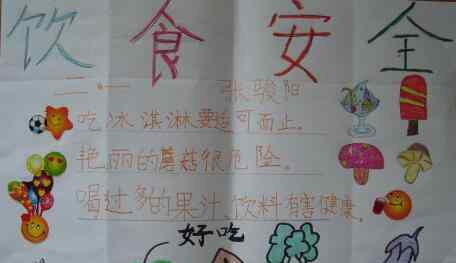 饮食安全
二.一 张骏阳
吃冰淇淋要适可而止。
艳丽的蘑菇很危险。
喝过多的果汁、饮料有害健康。
好吃